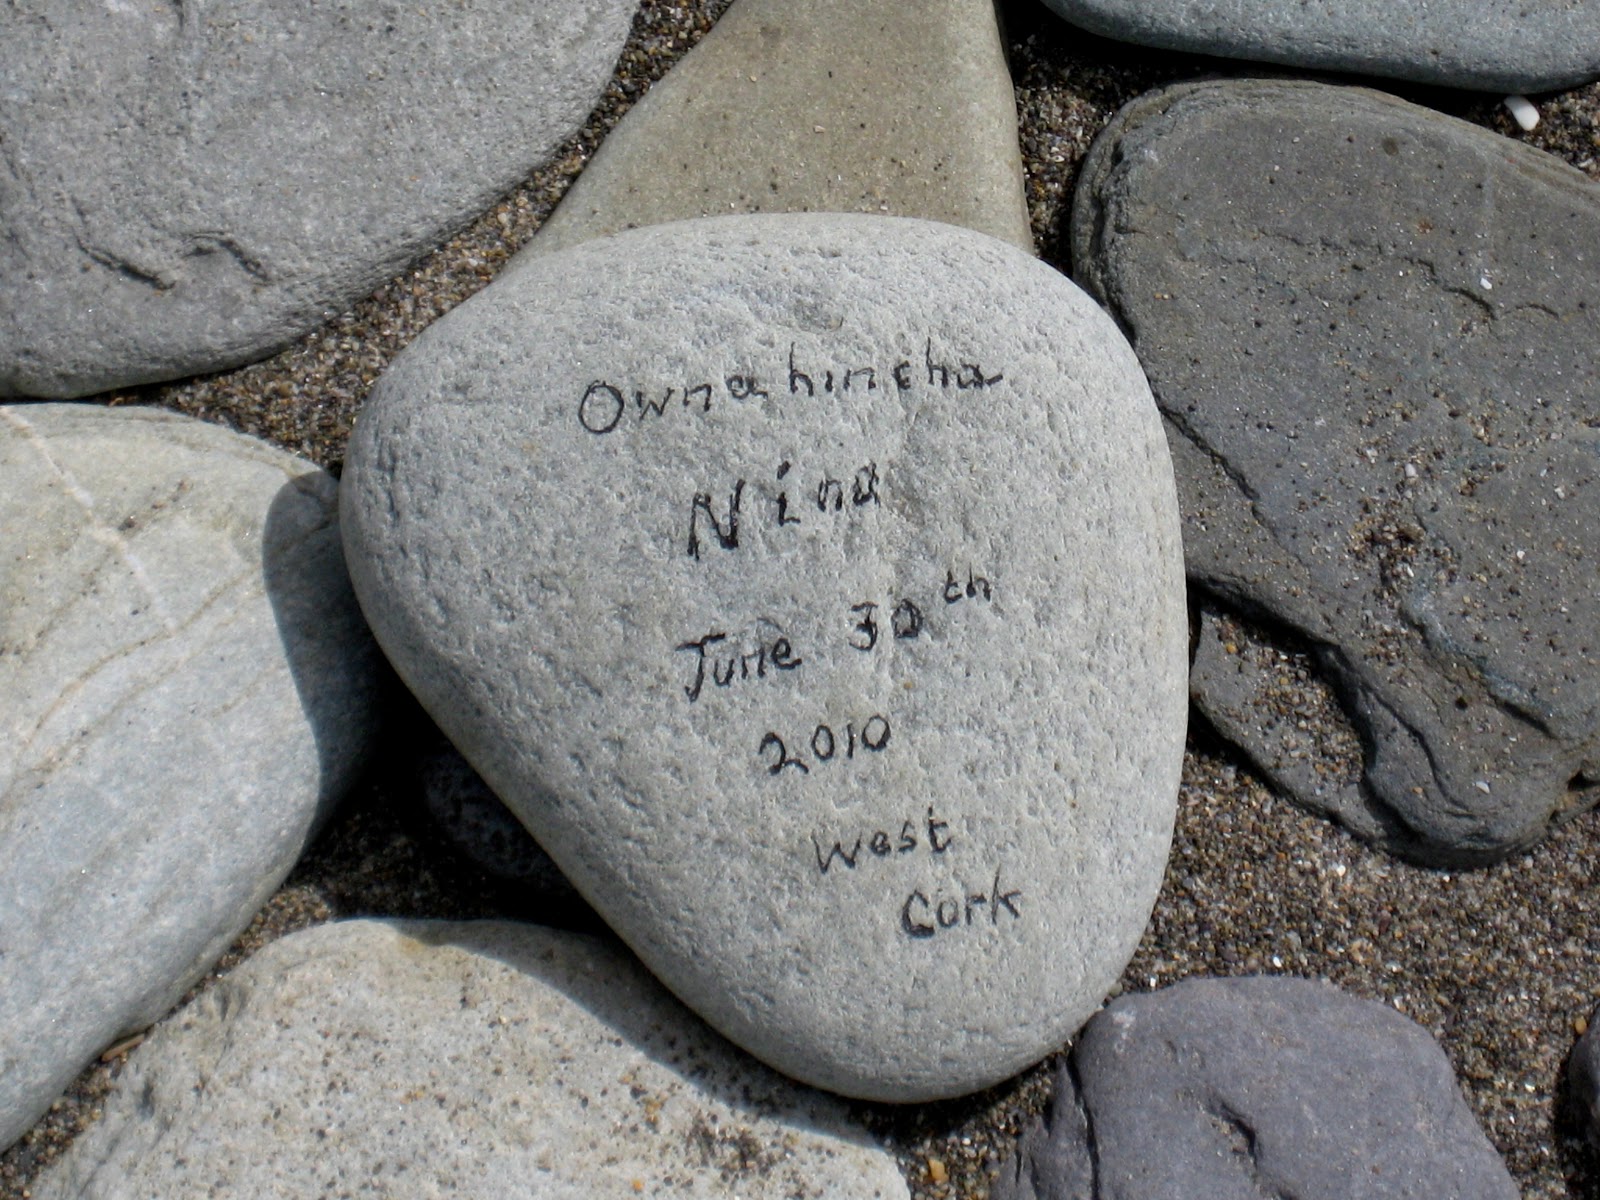 Ownahincha
Nina
June 30th
2010
West
Cork